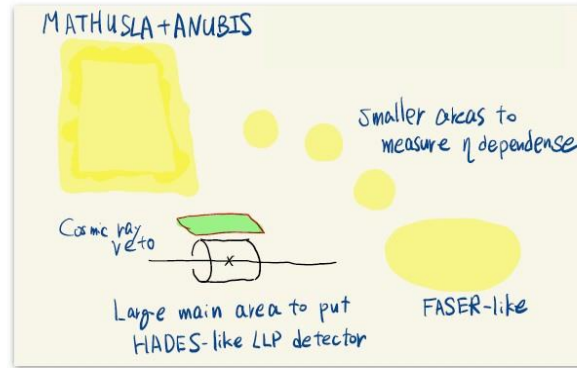 MATHUSLA+ANUBIS
Smaller areas to
measure η dependense
Cosmic ray
veto
Large main area to put
HADES-like LLP detector
FASER-like